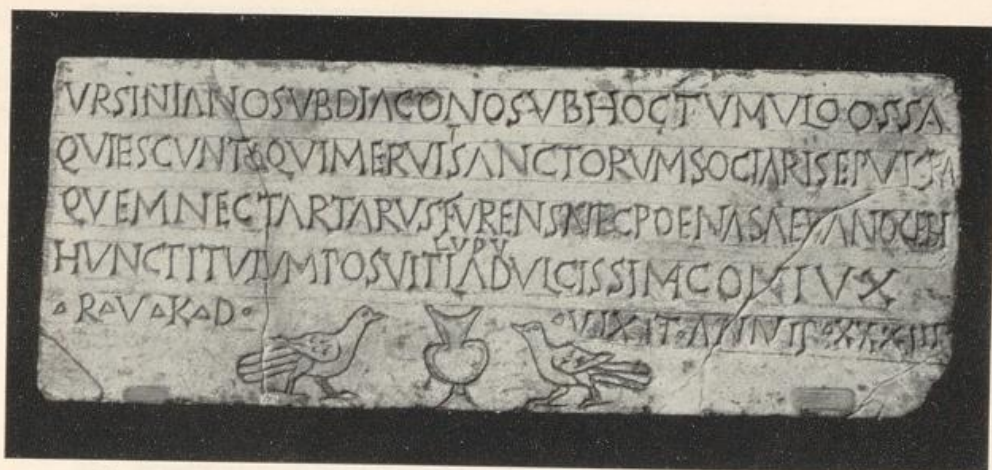 VRSINIANOSVBDIACONOSVBHOCTVMVLOOSSA
QVIESCVNTQVIMERVITSANCTORVMSOCIARISEPVLCRA
QVEMNECTARTARVSFVRENSNECPOENASAEVANOCEBI
LVDV
HVNCTITVLVMPOSVITLADVLCISSIMCONIVX
R·V·K·D· VIXIT·ANNIS·XXXIII